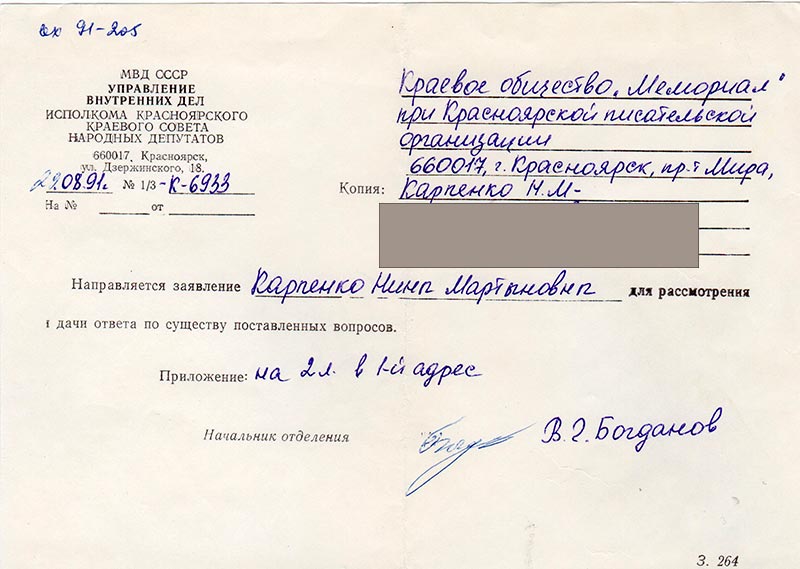 вх 91-205
МВД СССР
УПРАВЛЕНИЕ
ВНУТРЕННИХ ДЕЛ
ИСПОЛКОМА КРАСНОЯРСКОГО
КРАЕВОГО СОВЕТА
НАРОДНЫХ ДЕПУТАТОВ
660017, Красноярск,
ул. Дзержинского, 18.
29.08.91г. № 1/3-К-6933
На № от
Краевое общество „Мемориал"
при Красноярской писательской
организации
660017, г. Красноярск, пр-т Мира,
Копия: Карпенко Н.М-
Направляется заявление Карпенко Нины Мартыновны для рассмотрения
и дачи ответа по существу поставленных вопросов.
Приложение: на 2л. в 1-й адрес
Начальник отделения В.Г. Богданов
З. 264